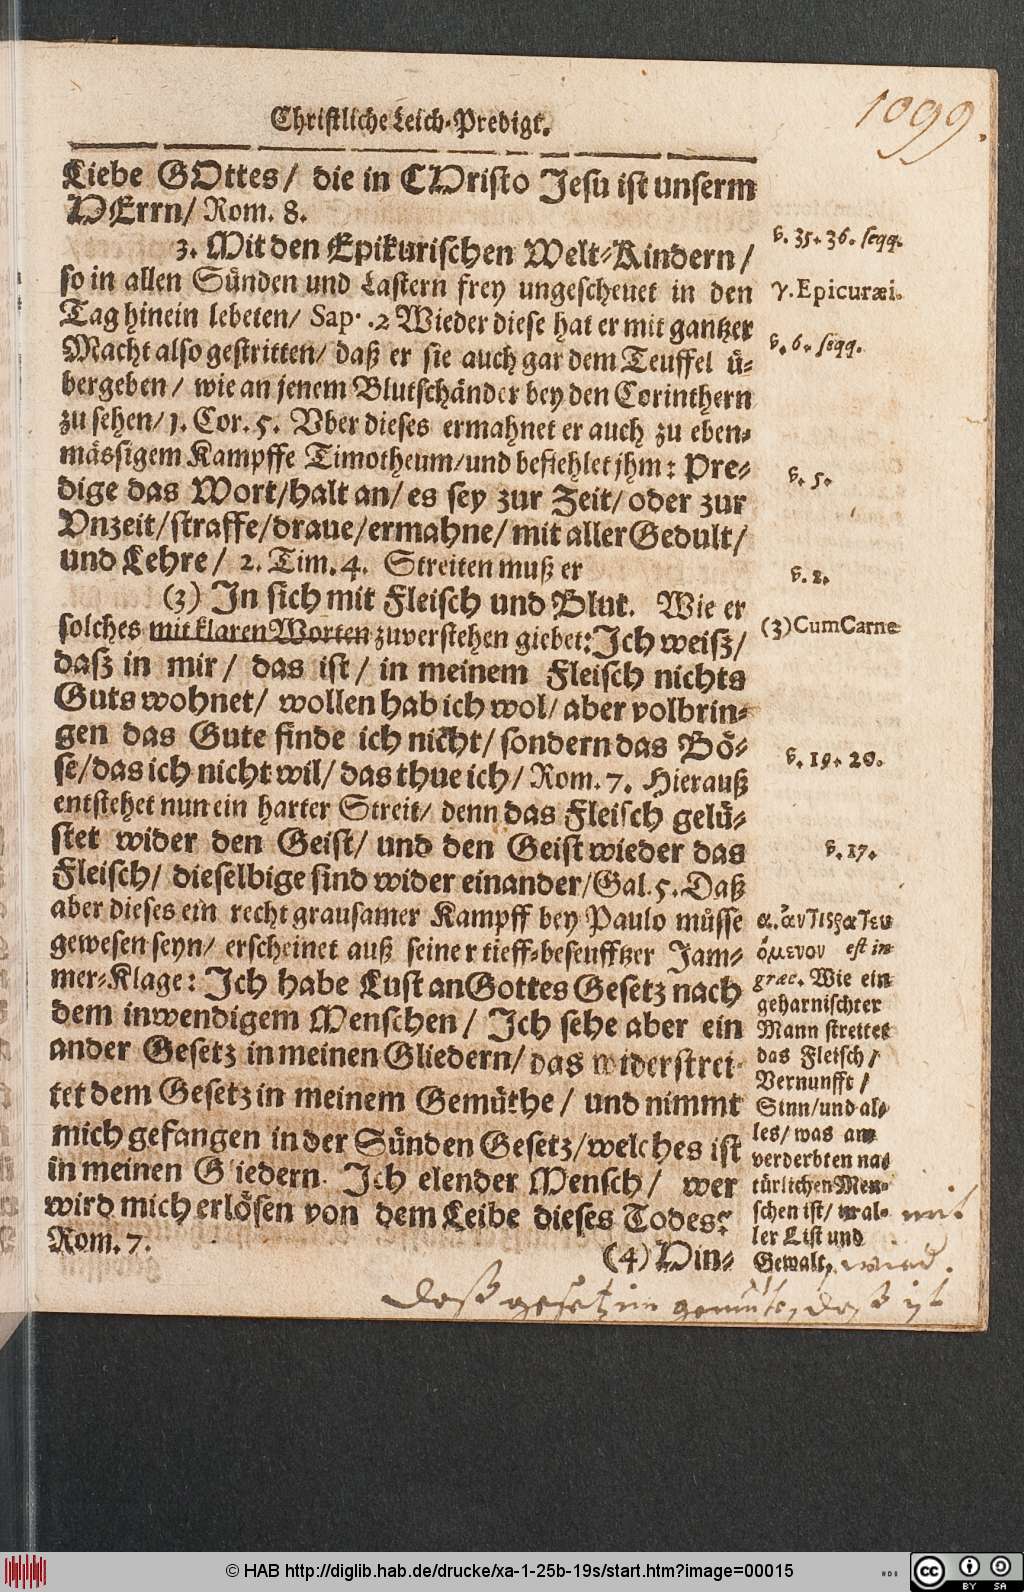 Christliche Leich-Predigt.
1099.
Liebe GOttes/ die in CHristo Jesu ist unserm
HErrn/ Rom. 8.
v. 35. 36. seqq.
3. Mit den Epikurischen Welt-Kindern/
γ. Epicuræi.
so in allen Sünden und Lastern frey ungescheuet in den
Tag hinein lebeten/ Sap. .2 Wieder diese hat er mit gantzer
v. 6. seqq.
Macht also gestritten/ daß er sie auch gar dem Teuffel ü-
bergeben/ wie an jenem Blutschänder bey den Corinthern
zu sehen/ 1. Cor. 5. Vber dieses ermahnet er auch zu eben-
v. 5.
mässigem Kampffe Timotheum/und befiehlet jhm: Pre-
dige das Wort/halt an/ es sey zur Zeit/ oder zur
Vnzeit/straffe/draue/ermahne/ mit aller Gedult/
und Lehre/ 2. Tim. 4. Streiten muß er
v. 2.
(3) In sich mit Fleisch und Blut. Wie er
(3) Cum Carne
solches mit klaren Worten zuverstehen giebet: Ich weiß/
daß in mir/ das ist/ in meinem Fleisch nichts
Guts wohnet/ wollen hab ich wol/ aber volbrin-
gen das Gute finde ich nicht/ sondern das Bö-
se/das ich nicht wil/ das thue ich/ Rom. 7. Hierauß
v. 19. 20.
entstehet nun ein harter Streit/ denn das Fleisch gelü-
stet wider den Geist/ und den Geist wieder das
v. 17.
Fleisch/ dieselbige sind wider einander/Gal. 5. Daß
aber dieses ein recht grausamer Kampff bey Paulo müsse
gewesen seyn/ erscheinet auß seiner tieff-beseufftzer Jam-
mer-Klage: Ich habe Lust an Gottes Gesetz nach
dem inwendigem Menschen/ Ich sehe aber ein
ander Gesetz in meinen Gliedern/ das widerstrei-
tet dem Gesetz in meinem Gemüthe/ und nimmt
mich gefangen in der Sünden Gesetz/welches ist
in meinen Gliedern. Ich elender Mensch/ wer
wird mich erlösen von dem Leibe dieses Todes?
Rom. 7.
(4) Hin-
α. ἀντιστρατευ
όμενον est in
græc. Wie ein
geharnischter
Mann streitet
das Fleisch/
Vernunfft/
Sinn/und al-
les/ was am
verderbten na-
türlichen Men-
schen ist/ m̃ al-
ler List und
Gewalt,
mit
wied.
daß gesetz im gemüte, daß ist
© HAB http://diglib.hab.de/drucke/xa-1-25b-19s/start.htm?image=00015
cc BY SA